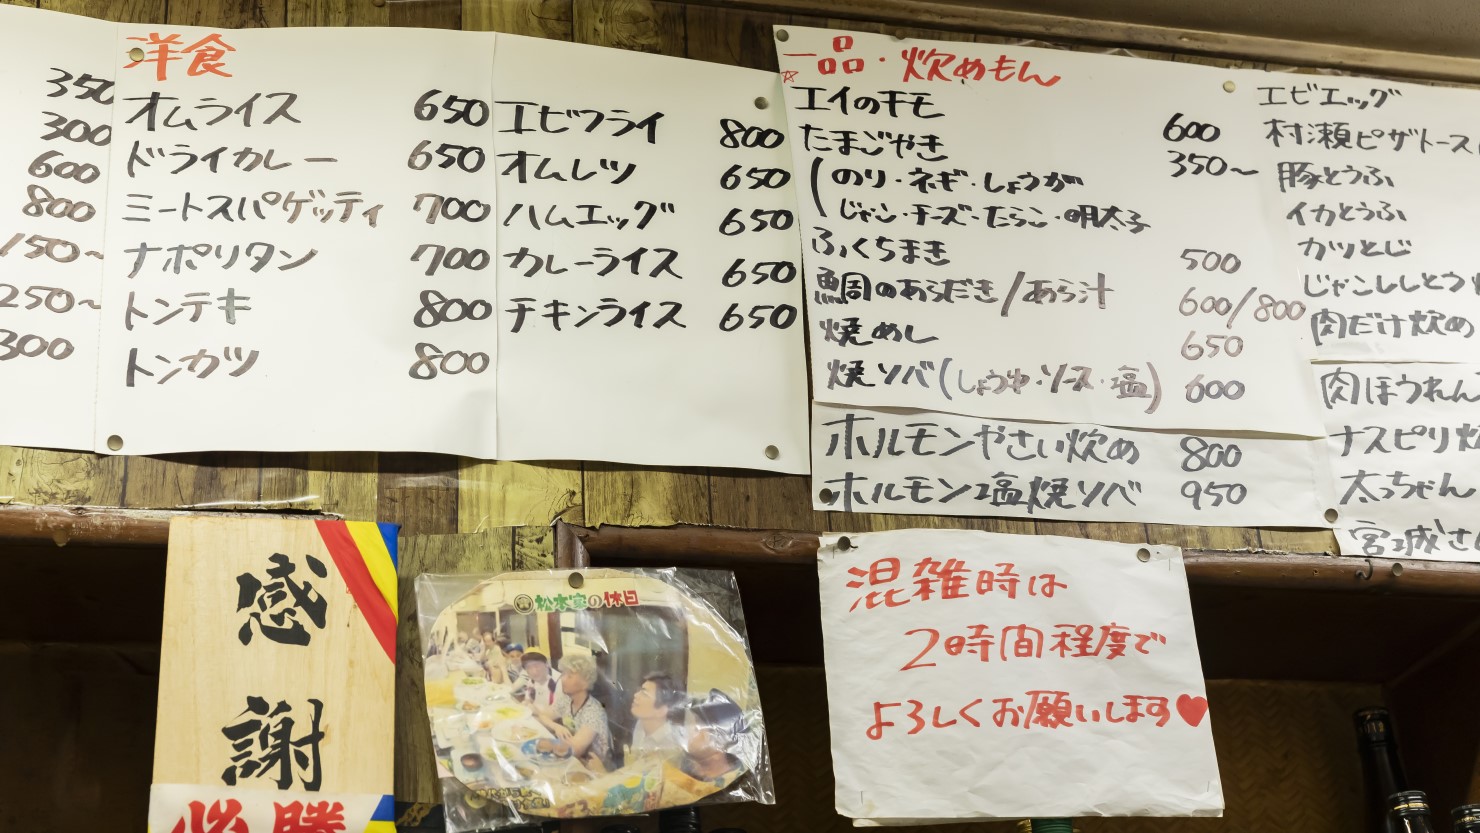 350
300
600
800
150~
250~
300
洋食
オムライス 650
ドライカレー 650
ミートスパゲッティ 700
ナポリタン 700
トンテキ 800
トンカツ 800
エビフライ 800
オムレツ 650
ハムエッグ 650
カレーライス 650
チキンライス 650
一品・炊めもん
エイのキモ 600
たまごやき 350~
(のり・ネギ・しょうが
じゃこ・チーズ・たらこ・明太子
ふくちまき 500
鯛のあらだき/あら汁 600/800
焼めし 650
焼ソバ(しょうゆ・ソース・塩) 600
ホルモンやさい炊め 800
ホルモン塩焼ソバ 950
エビエッグ
村瀬ピザトース
豚とうふ
イカとうふ
カツとじ
じゃこししとう
肉だけ炊め
肉ほうれん
ナスピリ
太っちゃん
宮城さん
感謝
必勝
松本家の休日
混雑時は
2時間程度で
よろしくお願いします♥